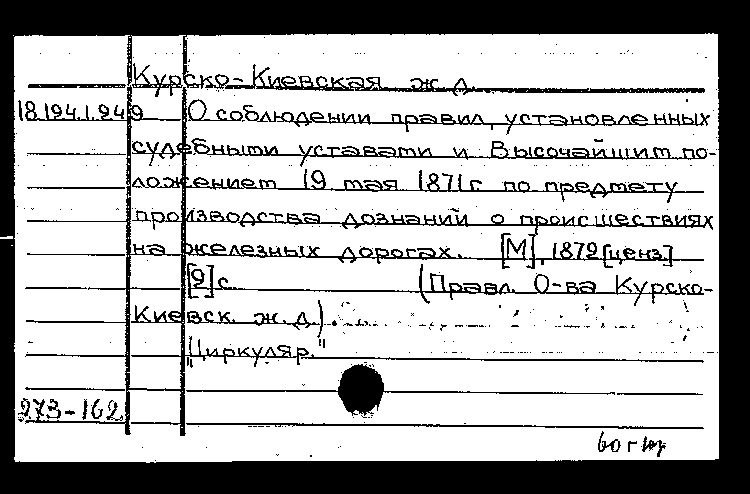 Курско-Киевская ж.д.
18.194.1.949 О соблюдении правил, установленных
судебными уставами и Высочайшим по-
ложением 19 мая 1871г по предмету
производства дознаний о происшествиях
на железных дорогах. [М], 1872 [ценз]
[2] с. (Правл. О-ва Курско-
Киевск. ж.д.).
"Циркуляр."
273-162